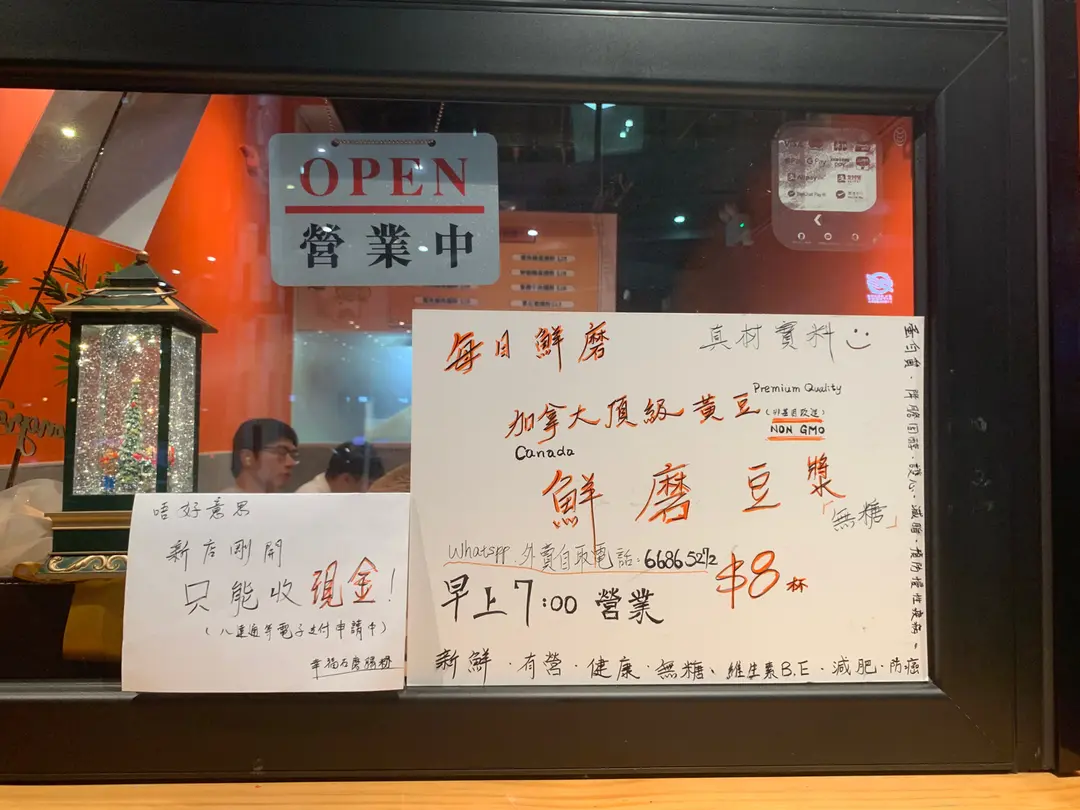 OPEN
營業中
每日鮮磨
真材實料
加拿大頂級黃豆
Premium Quality
(非基因改造)
NON GMO
Canada
鮮磨豆漿
「無糖」
Whatspp 外賣自取電話:66865272
$8杯
早上7:00 營業
新鮮·有營·健康·無糖、維生素B.E·減肥·防癌
蛋白質·降膽固醇·護心·減醣·預防慢性疾病、
唔好意思
新店剛開
只能收現金!
(八達通等電子支付申請中)
幸福石磨腸粉